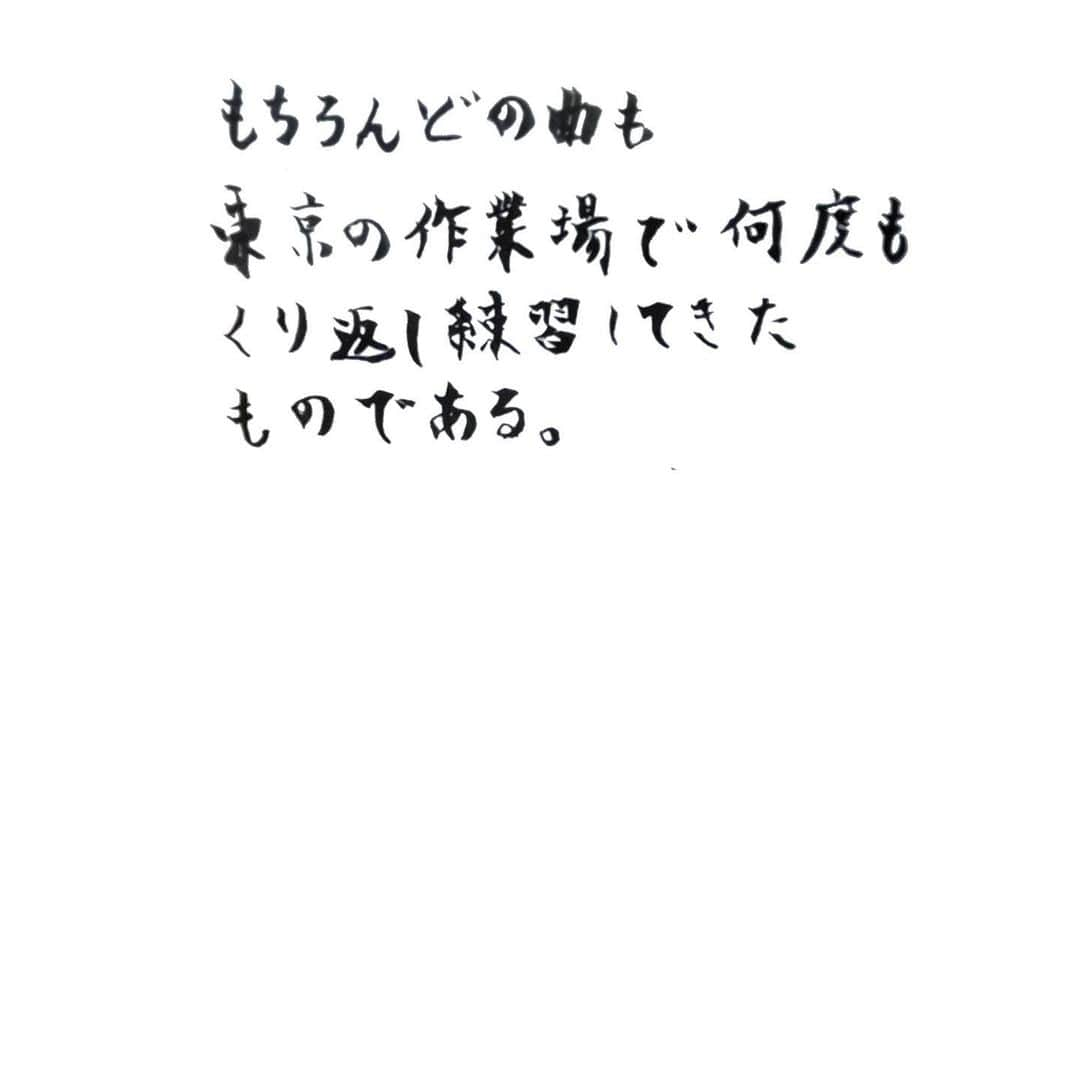 もちろんどの曲も
東京の作業場で何度も
くり返し練習してきた
ものである。